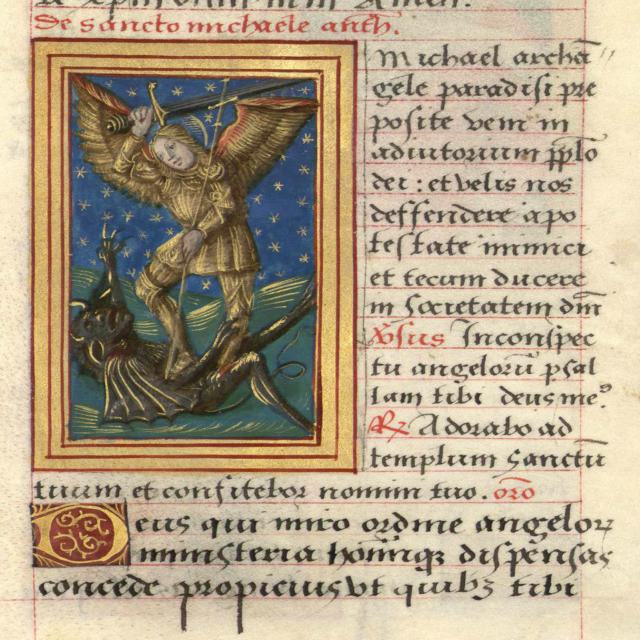 De sancto michaele arch.
Michael archā
gele paradisi pre
posite veni in
adiutorium pplo
dei : et velis nos
deffendere a po
testate inimici
et tecum ducere
in societatem dm̄
Vsus Inconspec
tu angeloru psal
lam tibi deus me⁹
R Adorabo ad
templum sanctū
tuum et confitebor nomini tuo. oro
Deus qui miro ordine angelor
ministeria hominqz dispensas
concede propicius vt quibz tibi